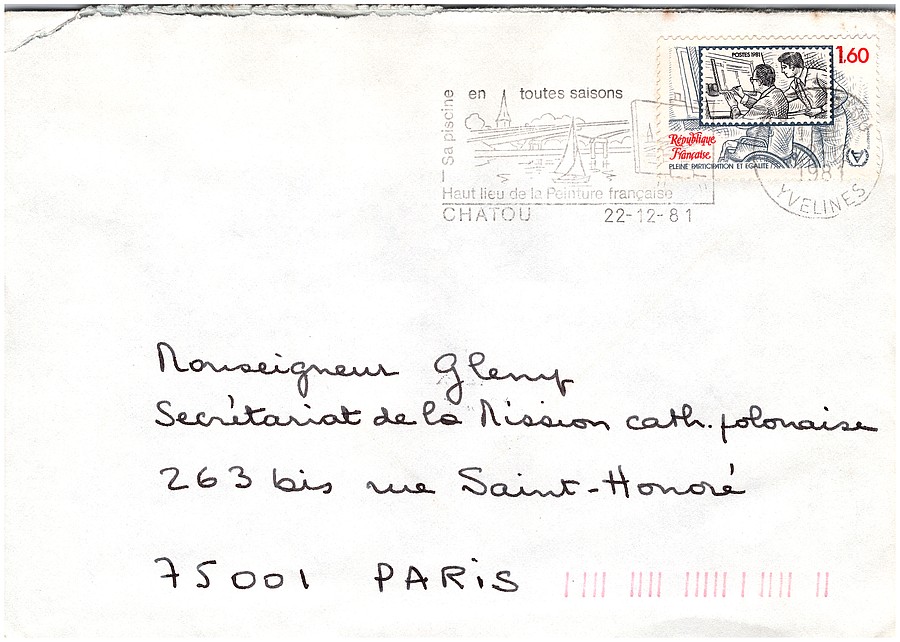 Sa piscine
en toutes saisons
Haut lieu de la Peinture française
CHATOU 22-12-81
POSTES 1981
1,60
République
Française
PLEINE PARTICIPATION ET EGALITE
1981
YVELINES
Monseigneur Glemp
Secrétariat de la Mission cath. polonaise
263 bis rue Saint-Honoré
75001 PARIS